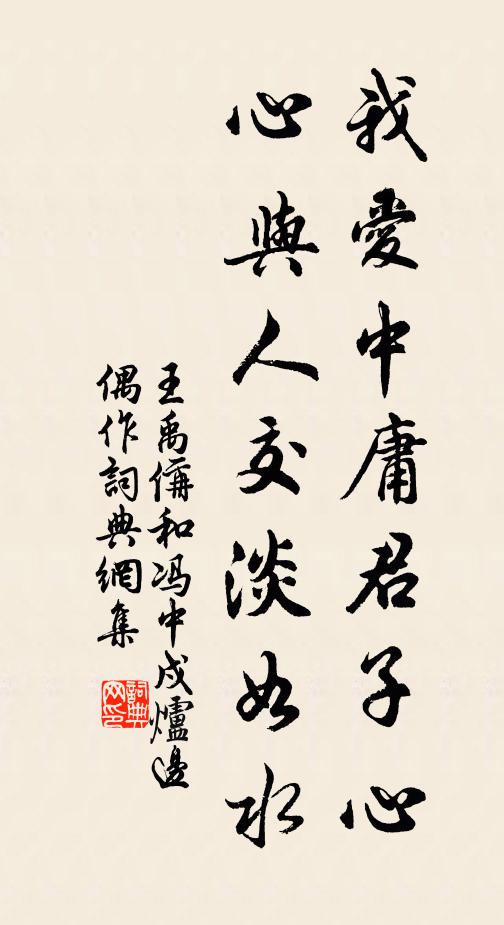 我愛中庸君子心
心與人交淡如水
王禹偁和冯中戍爐邊
偶作詞典網集
詞典网印